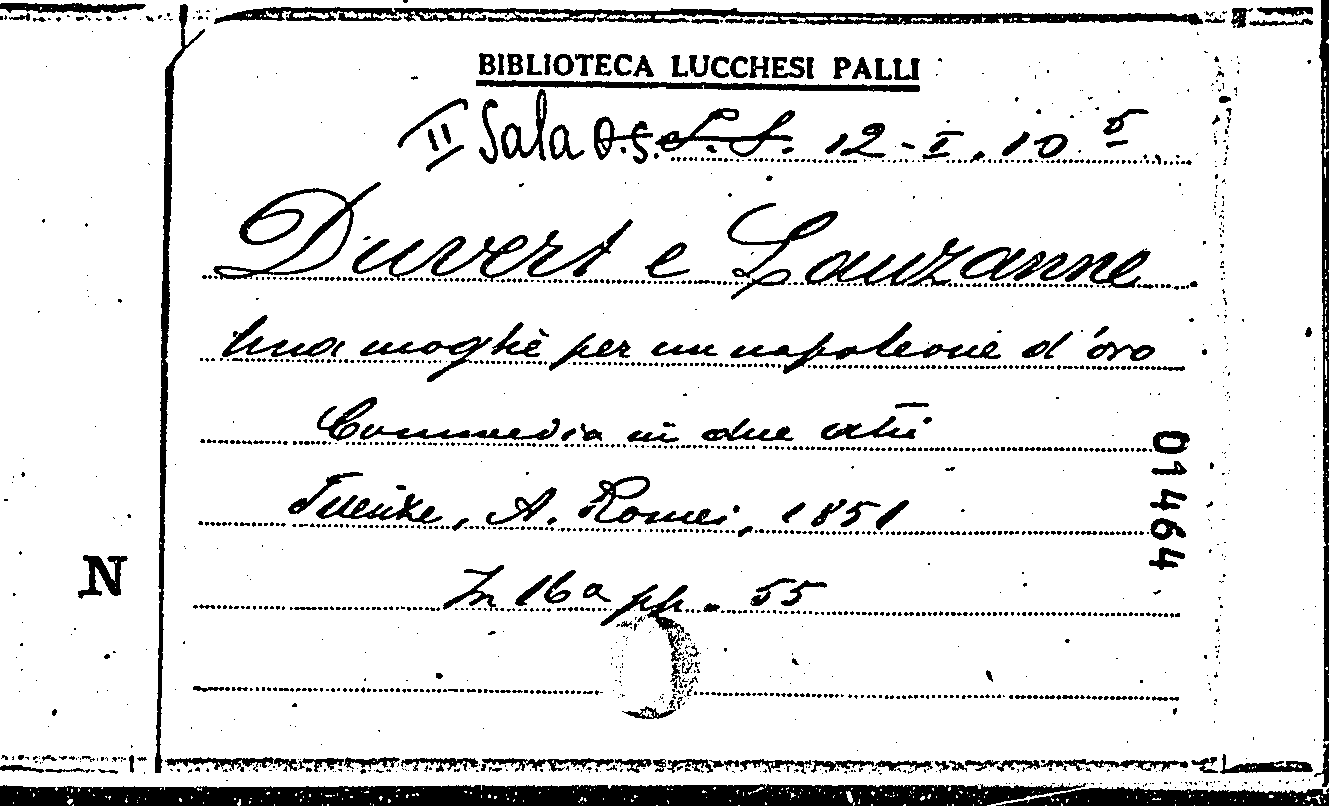 BIBLIOTECA LUCCHESI PALLI
II Sala O.S. S.S. 12-I.10 5
Duvert e Lauzanne
Una moglie per un napoleone d'oro
Commedia in due atti
Firenze, A. Romei, 1851
In 16º pp. 55
01464
N